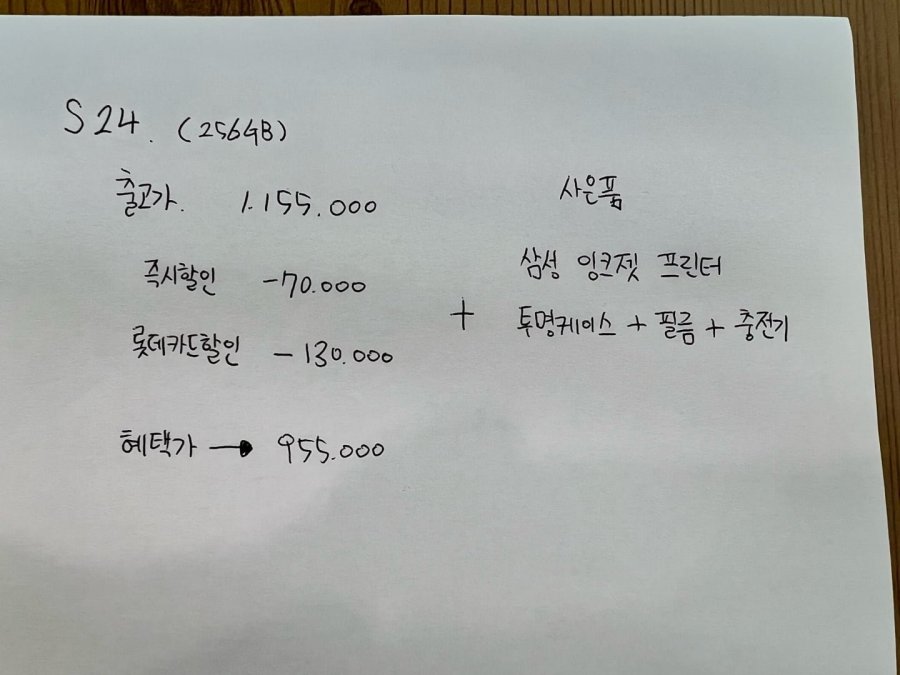 S24. (256GB)
출고가. 1.155.000
즉시할인 -70.000
롯데카드할인 - 130.000
혜택가 → 955.000
+
사은품
삼성 잉크젯 프린터
투명케이스 + 필름 + 충전기